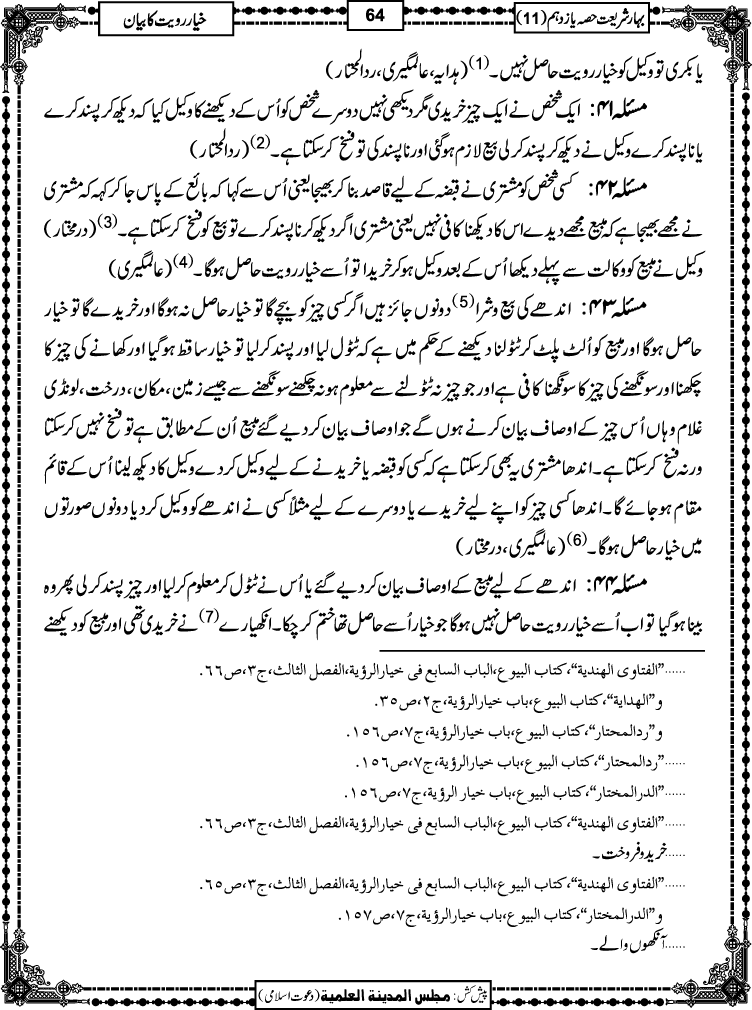 بہار شریعت حصہ یازدہم (11)
64
خیار رویت کا بیان
یا بکری تو وکیل کو خیار رویت حاصل نہیں۔(1) (ہدایہ، عالمگیری، ردالمحتار)
مسئلہ ۴۱: ایک شخص نے ایک چیز خریدی مگر دیکھی نہیں دوسرے شخص کو اُس کے دیکھنے کا وکیل کیا کہ دیکھ کر پسند کرے
یا ناپسند کرے وکیل نے دیکھ کر پسند کرلی بیع لازم ہوگئی اور ناپسند کی تو فسخ کرسکتا ہے۔(2) (ردالمحتار)
مسئلہ ۴۲: کسی شخص کو مشتری نے قبضہ کے لیے قاصد بنا کر بھیجا یعنی اُس سے کہا کہ بائع کے پاس جا کر کہہ کہ مشتری
نے مجھے بھیجا ہے کہ مبیع مجھے دیدے اس کا دیکھنا کافی نہیں یعنی مشتری اگر دیکھ کر ناپسند کرے تو بیع کو فسخ کرسکتا ہے۔(3) (درمختار)
وکیل نے مبیع کو وکالت سے پہلے دیکھا اُس کے بعد وکیل ہو کر خریدا تو اُسے خیار رویت حاصل ہوگا۔(4) (عالمگیری)
مسئلہ ۴۳: اندھے کی بیع و شرا(5) دونوں جائز ہیں اگر کسی چیز کو بیچے گا تو خیار حاصل نہ ہوگا اور خریدے گا تو خیار
حاصل ہوگا اور مبیع کو اُلٹ پلٹ کر ٹٹولنا دیکھنے کے حکم میں ہے کہ ٹٹول لیا اور پسند کرلیا تو خیار ساقط ہوگیا اور کھانے کی چیز کا
چکھنا اور سونگھنے کی چیز کا سونگھنا کافی ہے اور جو چیز نہ ٹٹولنے سے معلوم ہو نہ چکھنے سونگھنے سے جیسے زمین، مکان، درخت، لونڈی
غلام وہاں اُس چیز کے اوصاف بیان کرنے ہوں گے جو اوصاف بیان کر دیے گئے مبیع اُن کے مطابق ہے تو فسخ نہیں کرسکتا
ورنہ فسخ کرسکتا ہے۔ اندھا مشتری یہ بھی کرسکتا ہے کہ کسی کو قبضہ یا خریدنے کے لیے وکیل کردے وکیل کا دیکھ لینا اُس کے قائم
مقام ہوجائے گا۔ اندھا کسی چیز کو اپنے لیے خریدے یا دوسرے کے لیے مثلاً کسی نے اندھے کو وکیل کردیا دونوں صورتوں
میں خیار حاصل ہوگا۔(6) (عالمگیری، درمختار)
مسئلہ ۴۴: اندھے کے لیے مبیع کے اوصاف بیان کر دیے گئے یا اُس نے ٹٹول کر معلوم کرلیا اور چیز پسند کرلی پھر وہ
بینا ہوگیا تو اب اُسے خیار رویت حاصل نہیں ہوگا جو خیار اُسے حاصل تھا ختم کرچکا۔ انکھیارے(7) نے خریدی تھی اور مبیع کو دیکھنے
......”الفتاوى الهندية“، كتاب البيوع، الباب السابع فى خيارالرؤية، الفصل الثالث، ج٣، ص٦٦.
و”الهداية“، كتاب البيوع، باب خيارالرؤية، ج٢، ص٣٥.
و”ردالمحتار“، كتاب البيوع، باب خيارالرؤية، ج٧، ص١٥٦.
......”ردالمحتار“، كتاب البيوع، باب خيارالرؤية، ج٧، ص١٥٦.
......”الدرالمختار“، كتاب البيوع، باب خيار الرؤية، ج٧، ص١٥٦.
......”الفتاوى الهندية“، كتاب البيوع، الباب السابع فى خيارالرؤية، الفصل الثالث، ج٣، ص٦٦.
......خرید و فروخت۔
......”الفتاوى الهندية“، كتاب البيوع، الباب السابع فى خيارالرؤية، الفصل الثالث، ج٣، ص٦٥.
و”الدرالمختار“، كتاب البيوع، باب خيارالرؤية، ج٧، ص١٥٧.
......آنکھوں والے۔
پیش کش: مجلس المدينة العلمية (دعوت اسلامی)